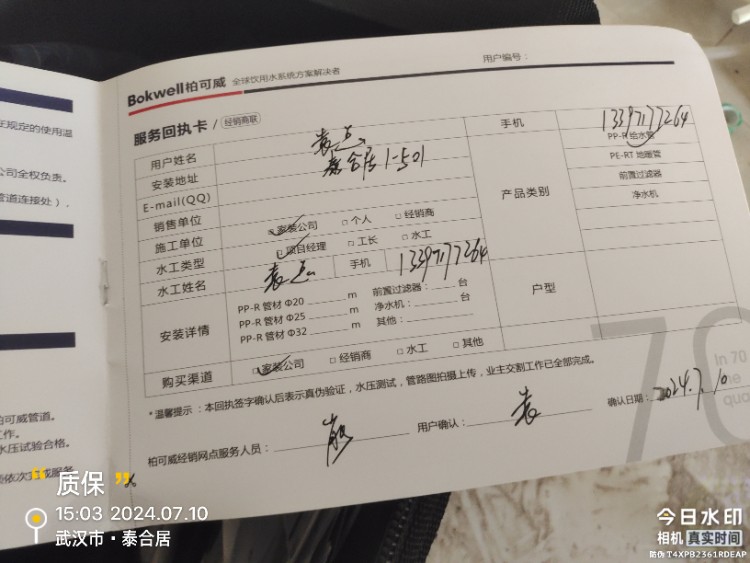 Bokwell柏可威 全球饮用水系统方案解决者
用户编号：
服务回执卡 / 经销商联
用户姓名
手机 13397177264
安装地址 泰合居1-501
E-mail(QQ)
产品类别
PP-R 给水管
PE-RT 地暖管
前置过滤器
净水机
销售单位 □家装公司 □个人 □经销商
施工单位
水工类型 □项目经理 □工长 □水工
水工姓名 手机 13397177264
安装详情
PP-R 管材 Φ20 m 前置过滤器： 台
PP-R 管材 Φ25 m 净水机： 台
PP-R 管材 Φ32 m 其他：
户型
购买渠道 □家装公司 □经销商 □水工 □其他
*温馨提示：本回执签字确认后表示真伪验证，水压测试，管路图拍摄上传，业主交割工作已全部完成。
柏可威经销网点服务人员： 用户确认： 袁 确认日期： 2024.7.10
70
In 70
在规定的使用温
公司全权负责。
管道连接处），
柏可威管道。
工作。
水压试验合格。
质保
15:03 2024.07.10
武汉市·泰合居
今日水印
相机 真实时间
防伪 T4XPB2361RDEAP